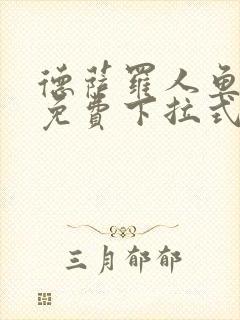 德薩羅人魚
免費下拉式
三月郁郁